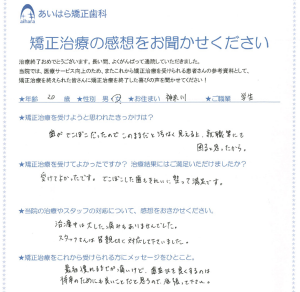 あいはら矯正歯科
矯正治療の感想をお聞かせください
治療終了おめでとうございます。長い間、よくがんばって通院していただきました。
当院では、医療サービス向上のため、またこれから矯正治療を受けられる患者さんの参考資料として、
矯正治療を終えられた皆さんに矯正治療を終了した喜びの声を聞かせてください!
★年齢 20 歳 ★性別 男・女 ★お住まい 神奈川 ★ご職業 学生
★矯正治療を受けようと思われたきっかけは?
歯がでこぼこだったのでこのままだと汚なく見えるし、就職等にも
困ると思ったから。
★矯正治療を受けてよかったですか? 治療結果にはご満足いただけましたか?
受けてよかったです。でこぼこした歯もきれいに整って満足です。
★当院の治療やスタッフの対応について、感想をおきかせください。
治療中は少し痛みもありましたが、
スタッフさんは皆親切に対応して下さいました。
★矯正治療をこれから受けられる方にメッセージをひとこと。
最初慣れるまでが痛いけど、歯並びを良くするのは
将来のためにも良いことだと思うので、頑張って下さい。